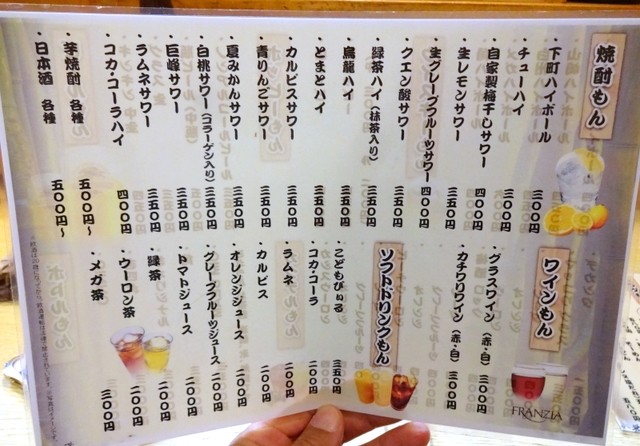 焼酎もん
・下町ハイボール 三〇〇円
・チューハイ 三〇〇円
・自家製梅干しサワー 四〇〇円
・生レモンサワー 三五〇円
・生グレープフルーツサワー 四〇〇円
・クエン酸サワー 三五〇円
・緑茶ハイ（抹茶入り） 三五〇円
・烏龍ハイ 三五〇円
・とまとハイ 三五〇円
・カルピスサワー 三五〇円
・青りんごサワー 三五〇円
・夏みかんサワー 三五〇円
・白桃サワー（コラーゲン入り） 三五〇円
・巨峰サワー 三五〇円
・ラムネサワー 三五〇円
・コカ・コーラハイ 四〇〇円
・芋焼酎 各種 五〇〇円〜
・日本酒 各種 五〇〇円〜
ワインもん
・グラスワイン（赤・白） 三〇〇円
・カチワリワイン（赤・白） 三〇〇円
FRANZIA
ソフトドリンクもん
・こどもびいる 三五〇円
・コカ・コーラ 二〇〇円
・ラムネ 二〇〇円
・カルピス 二〇〇円
・オレンジジュース 二〇〇円
・グレープフルーツジュース 二〇〇円
・トマトジュース 二〇〇円
・緑茶 二〇〇円
・ウーロン茶 二〇〇円
・メガ茶 三〇〇円